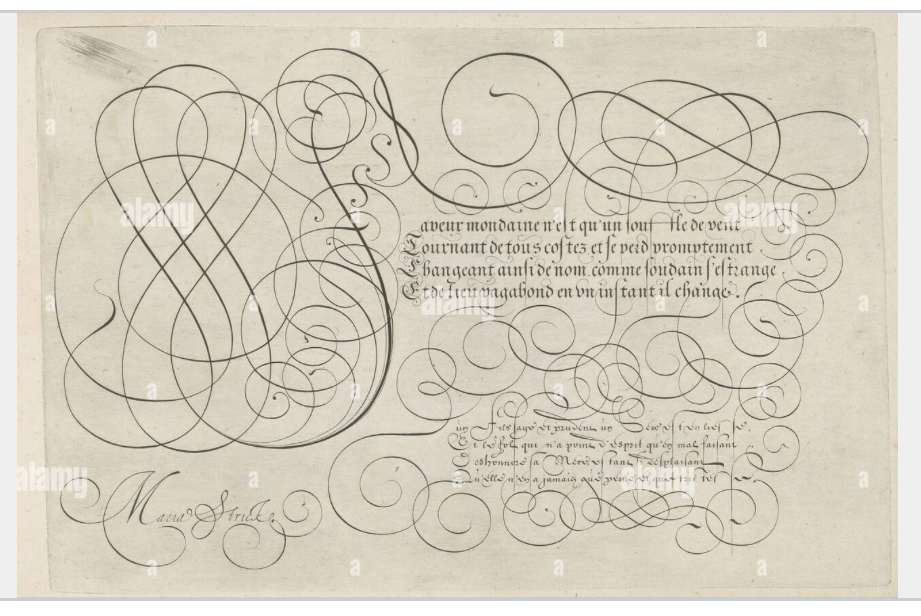 Faveur mondaine n'est qu'un souffle de vent
Tournant de tous costez et se perd promptement .
Changeant ainsi de nom, comme soudain s'estrange
Et de lieu vagabond en vn instant il change .
un Fils sage et prudent un est en
Et le fol qui n'a point d'esprit qu'en mal faisant
Deshonnore sa Mere estant desplaisant
Qu'elle n'en a jamais que peine et que tristes
Maria Strick.
alamy
alamy
alamy
alamy
alamy